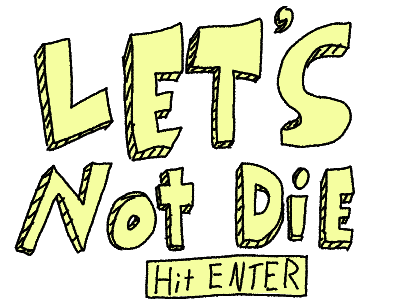 LET'S
NOt DiE
Hit ENTER